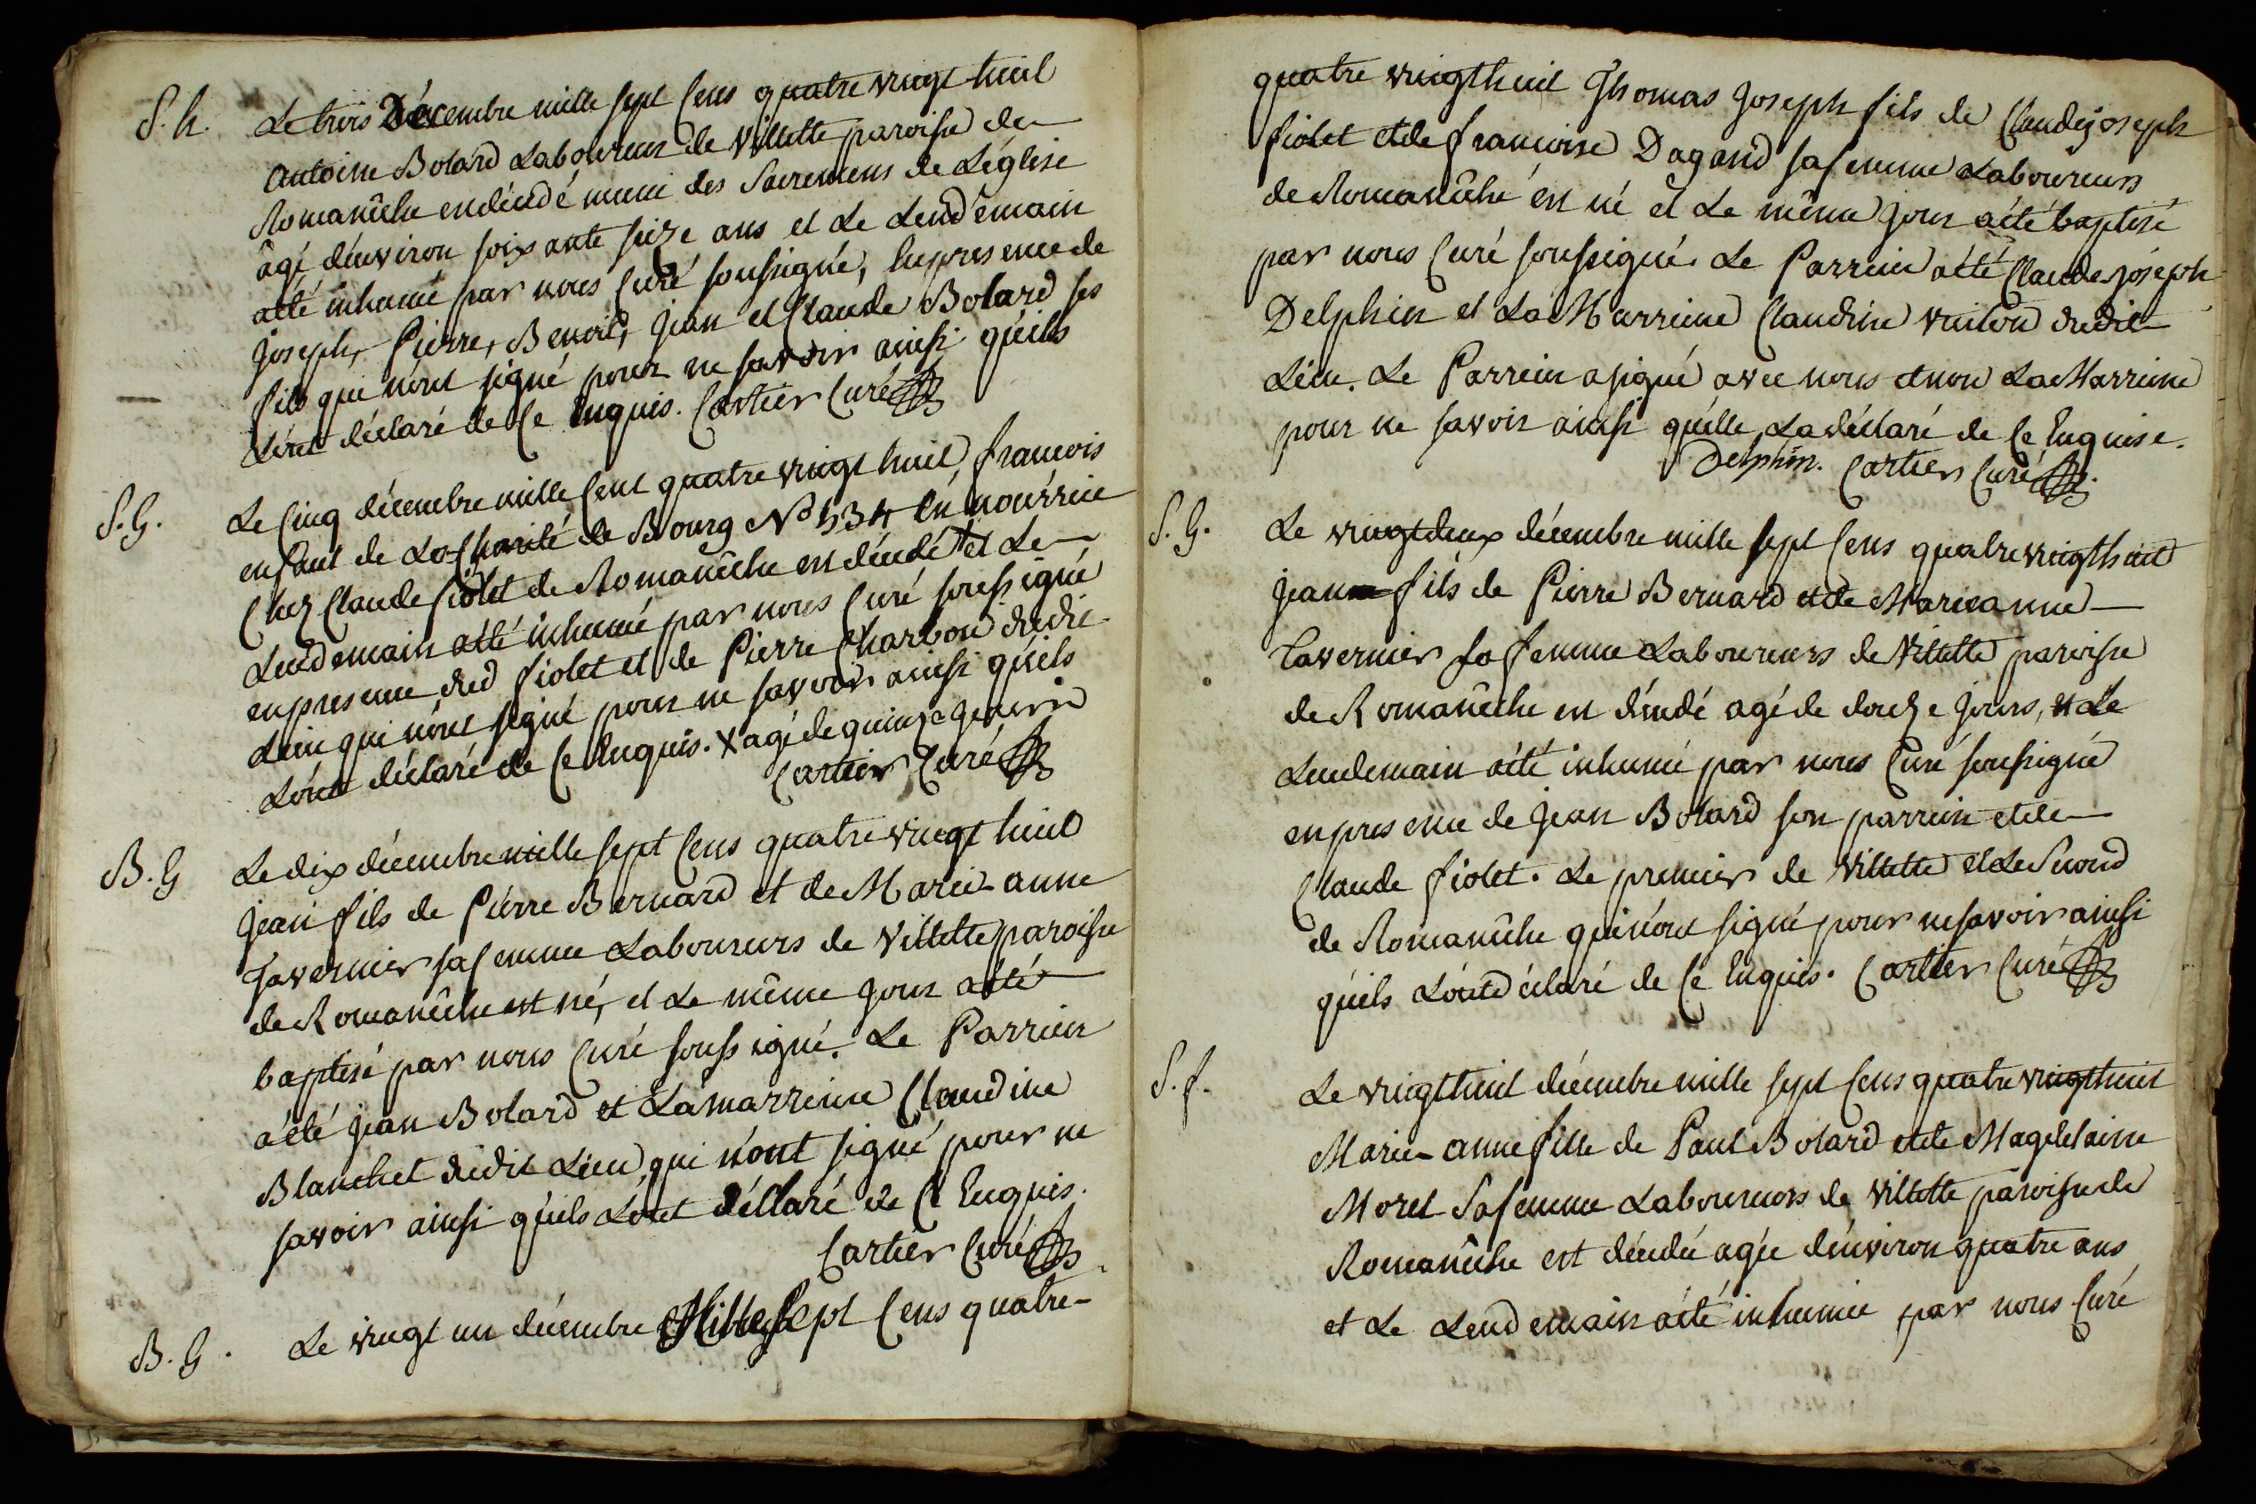 S. h. Le trois Décembre mille sept Cens quatre vingt huit
antoine Bolard Laboureur de Villette paroisse de
Romanêche endécédé muni des Sacremens de L'église
âgé d'environ soixante seize ans et Le Lendemain
aété inhumé par nous Curé soussigné, En présence de
Joseph, Pierre, Benoit, Jean et Claude Bolard ses
fils qui n'ont signé pour ne savoir ainsi qu'ils
L'ont déclaré de Ce Enquis. Cartier Curé
S. G. Le Cinq décembre mille Cent quatre vingt huit, francois
enfant de La Charité de Bourg N° 534 En nourrice
Chez Claude fiolet de Romanêche en décédé + et Le
Lendemain aété inhumé par nous Curé soussigné
en presence dud fiolet et de Pierre Charbon dudit
Lieu qui n'ont signé pour ne savoir ainsi qu'ils
L'ont déclaré de Ce Enquis. X agé de quinze jours
Cartier Curé
B. G Le dix décembre mille sept Cens quatre vingt huit
Jean fils de Pierre Bernard et de Marie-anne
Tavernier sa femme Laboureurs de Villette paroisse
de Romanêche est né, et Le même jour aété
baptisé par nous Curé soussigné. Le Parrein
aété Jean Bolard et La marreine Claudine
Blanchet dudit Lieu, qui n'ont signé pour ne
savoir ainsi qu'ils L'ont déclaré de Ce Enquis.
Cartier Curé
B. G. Le vingt un décembre Mille Sept Cens quatre-
quatre vingt huit Thomas Joseph fils de Claudejoseph
fiolet et de francoise Dagand sa femme Laboureurs
de Romanêche en né et Le même jour aété baptisé
par nous Curé soussigné. Le Parrein aété Claude Joseph
Delphin et La Marreine Claudine vuiton dudit
Lieu. Le Parrein a signé avec nous et non La Marreine
pour ne savoir ainsi qu'elle La déclaré de Ce Enquise.
Delphin. Cartier Curé
S. G. Le vingt deux décembre mille sept Cens quatre vingt huit
Jean fils de Pierre Bernard et de Marieanne
Tavernier sa femme Laboureurs de Villette paroisse
de Romanêche en décédé agé de douze jours, et Le
Lendemain aété inhumé par nous Curé soussigné
en presence de Jean Bolard son parrein et de
Claude fiolet. Le premier de Villette et Le Second
de Romanêche qui n'ont signé pour ne savoir ainsi
qu'ils L'ont déclaré de Ce Enquis. Cartier Curé
S. f. Le vingt huit décembre mille sept Cens quatre vingt huit
Marie-anne fille de Paul Bolard et de Magdelaine
Morel Sa femme Laboureurs de Villette paroisse de
Romanêche est décédée agée d'environ quatre ans
et Le Lendemain aété inhumée par nous Curé